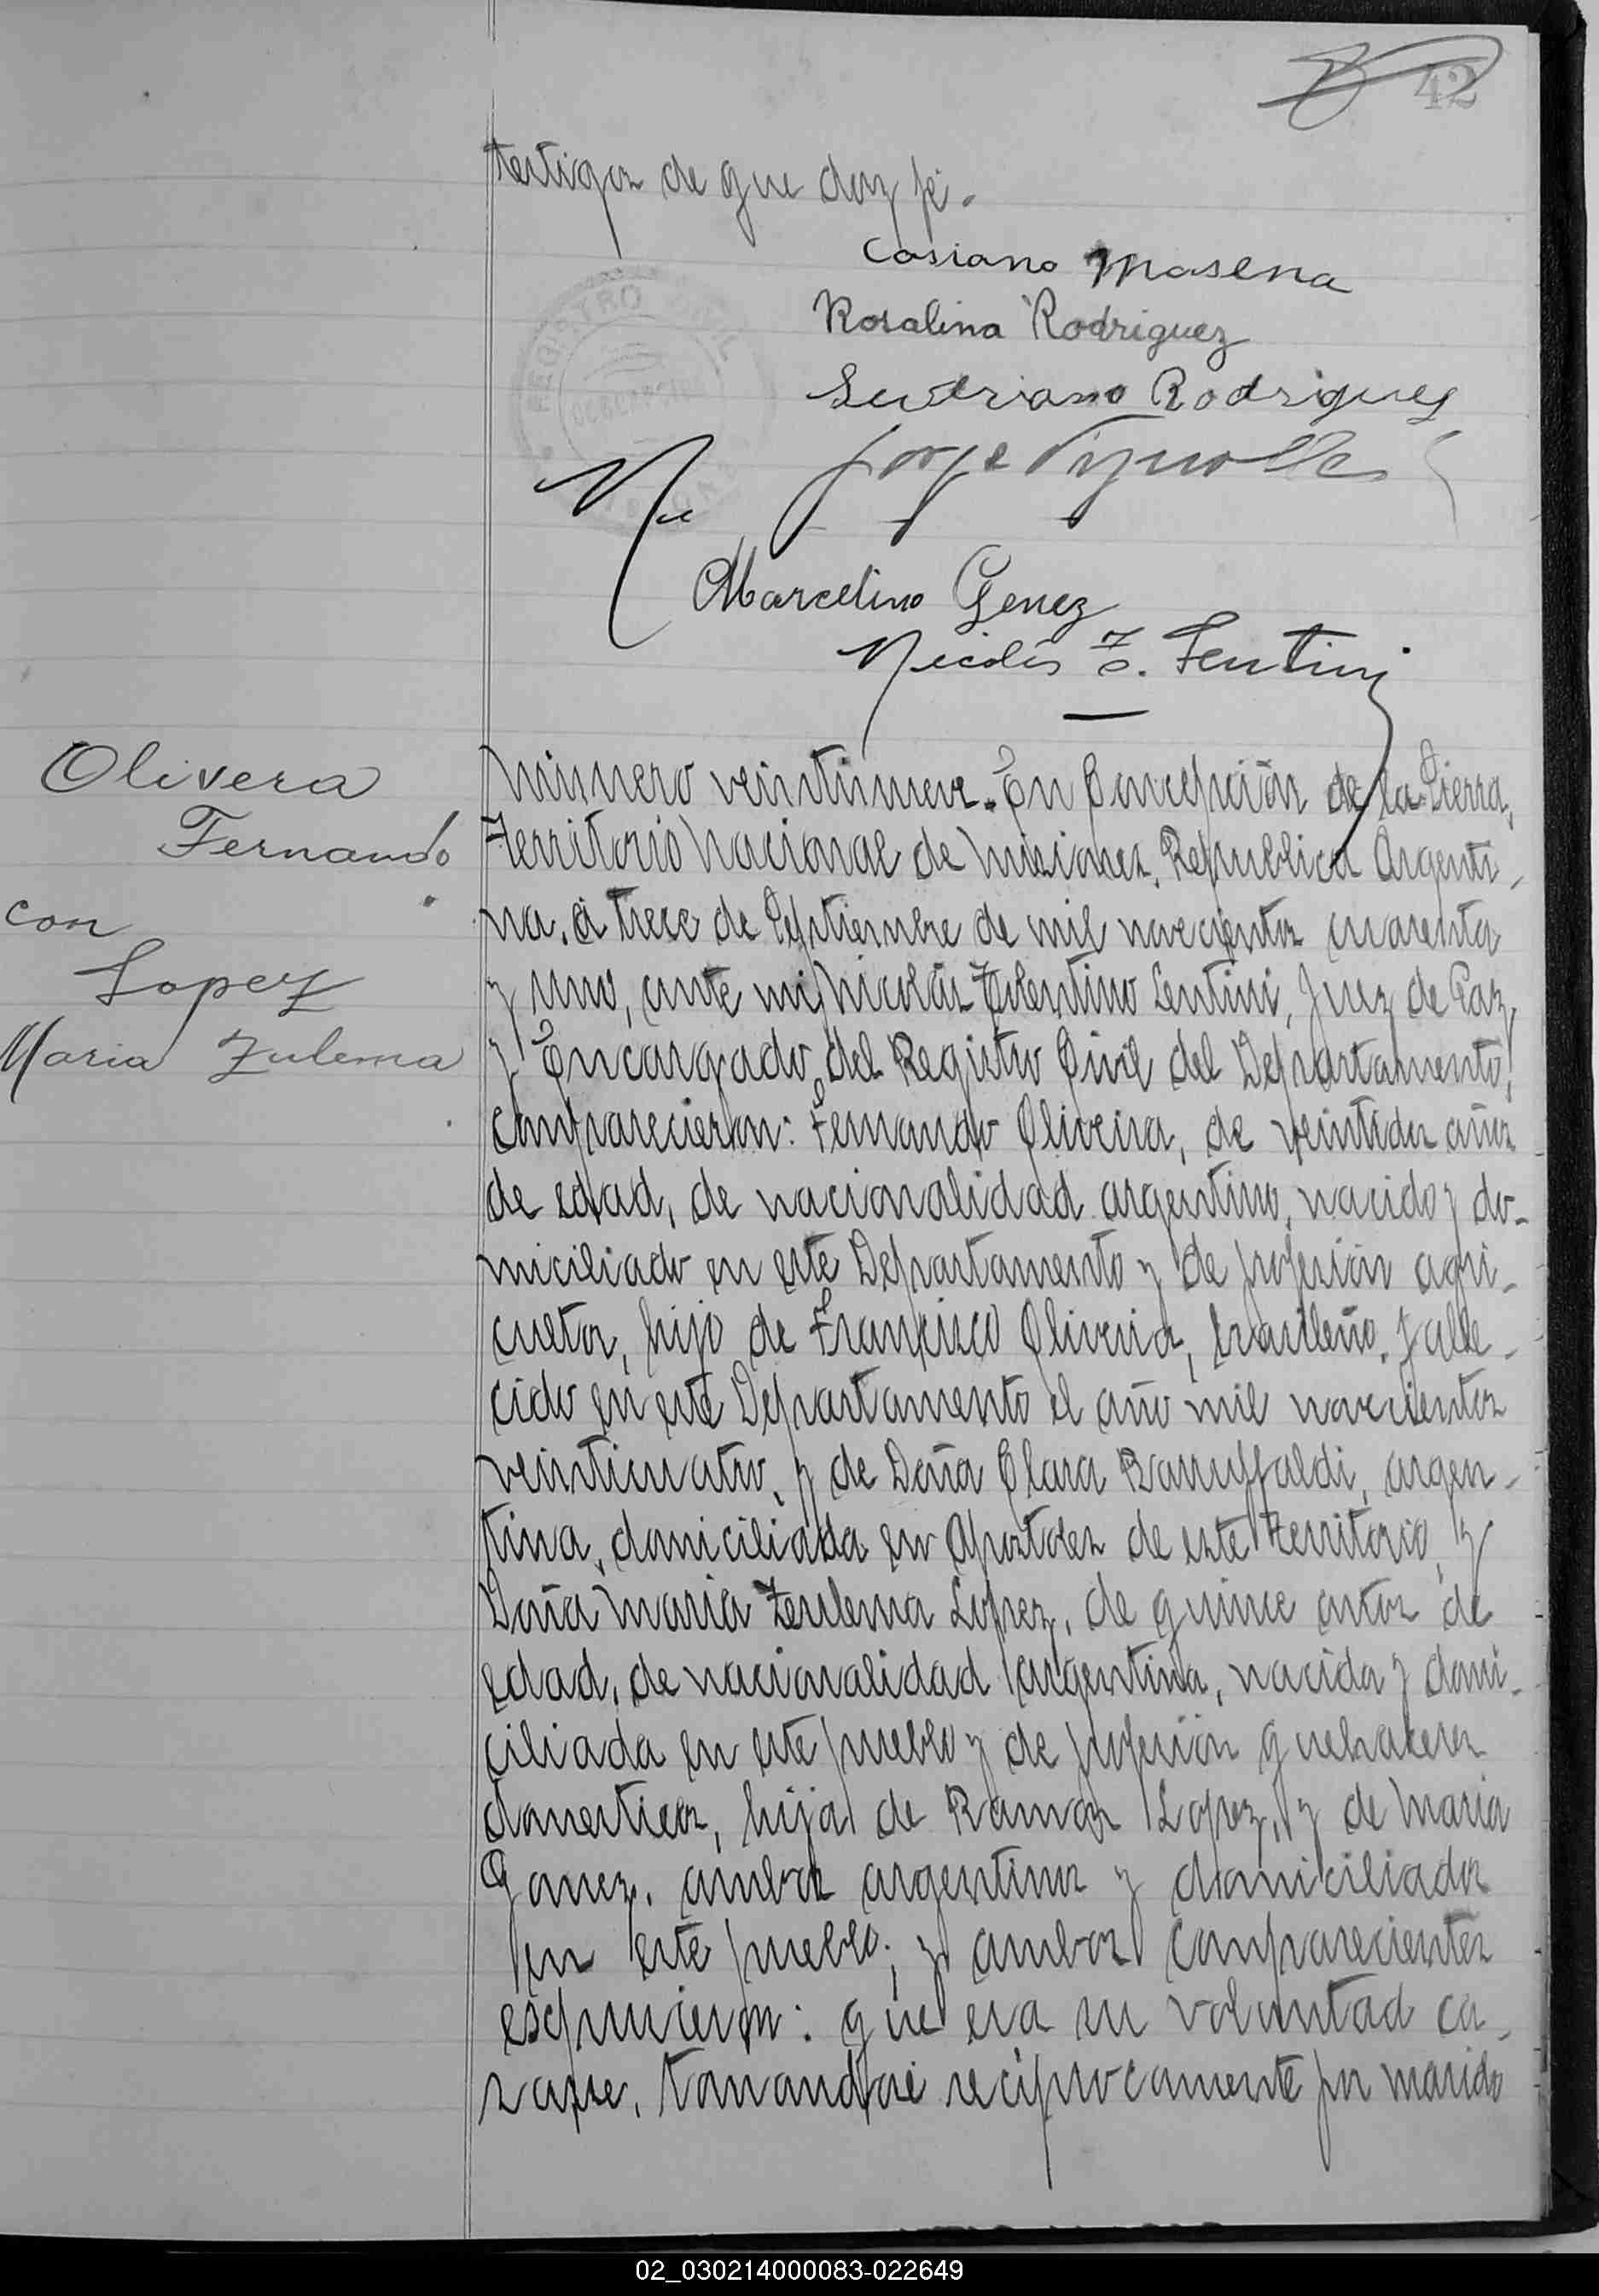 42
testigos de que doy fé.
Casiano Masena
Rosalina Rodriguez
Rodrigues
REGISTRO
Jorge Vignolles
Marcelino Genez
Nicolás T. Lentini
Olivera
Fernando
con
Lopez
Maria Zulema
Número veintinueve. En Concepción de la Sierra,
Territorio Nacional de Misiones, República Argenti-
na, á trece de Septiembre de mil novecientos cuarenta
y uno, ante mi Nicolás Tolentino Lentini, Juez de Paz
y Encargado del Registro Civil del Departamento,
comparecieron: Fernando Oliveira, de veintidos años
de edad, de nacionalidad argentino, nacido y do-
miciliado en este Departamento y de profesión agri-
cultor, hijo de Francisco Oliveira, brasileño, falle-
cido en este Departamento el año mil novecientos
veinticuatro, y de Doña Clara argen-
tina, domiciliada en Apostoles de este territorio, y
Doña Maria Zulema Lopez, de quince años de
edad, de nacionalidad argentina, nacida y domi-
ciliada en este pueblo y de profesión quehaceres
domesticos, hija de Ramon Lopez, y de Maria
Gomez, ambos argentinos y domiciliados
en este pueblo; y ambos comparecientes
expusieron: que era su voluntad ca-
sarse, tomandose reciprocamente por marido
02_030214000083-022649